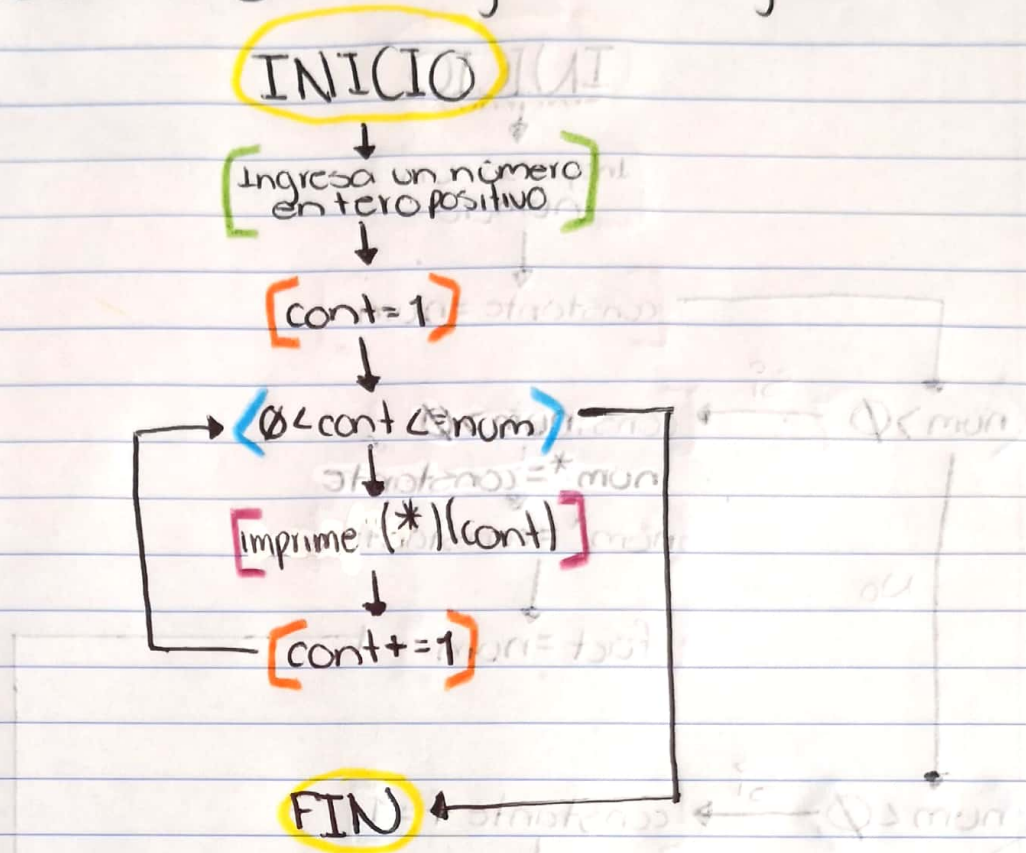 INICIO
Ingresa un número
entero positivo
cont=1
0<cont<=num
imprime (*)(cont)
cont+=1
FIN